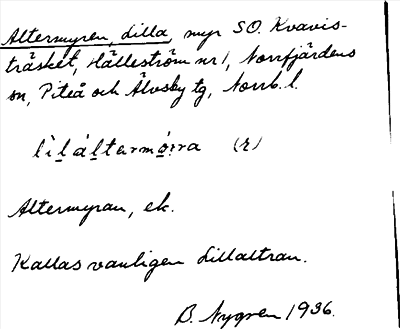 Altermyren, dilla, myr SO. Kvavis-
träsket, Hälleström nr 1, Norrfjärdens
sn, Piteå och Älvsby tg, Norrb. l.
Altermyran, ek.
Kallas vanligen Lillaltran.
B. Nygren 1936.